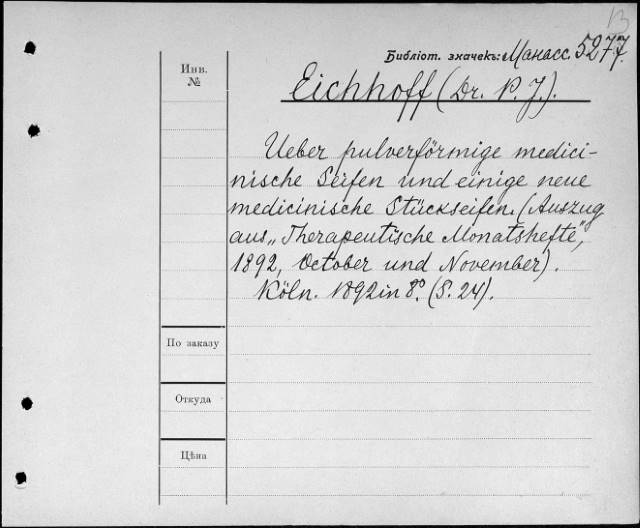 13
Библіот. значекъ: Манасс. 5277.
Инв.
№
Eichhoff (Dr. P. J.).
Ueber pulverförmige medici-
nische Seifen und einige neue
medicinische Stückseifen. (Auszug
aus „Therapeutische Monatshefte",
1892, October und November).
Köln. 1892 in 8º. (S. 24).
По заказу
Откуда
Цѣна